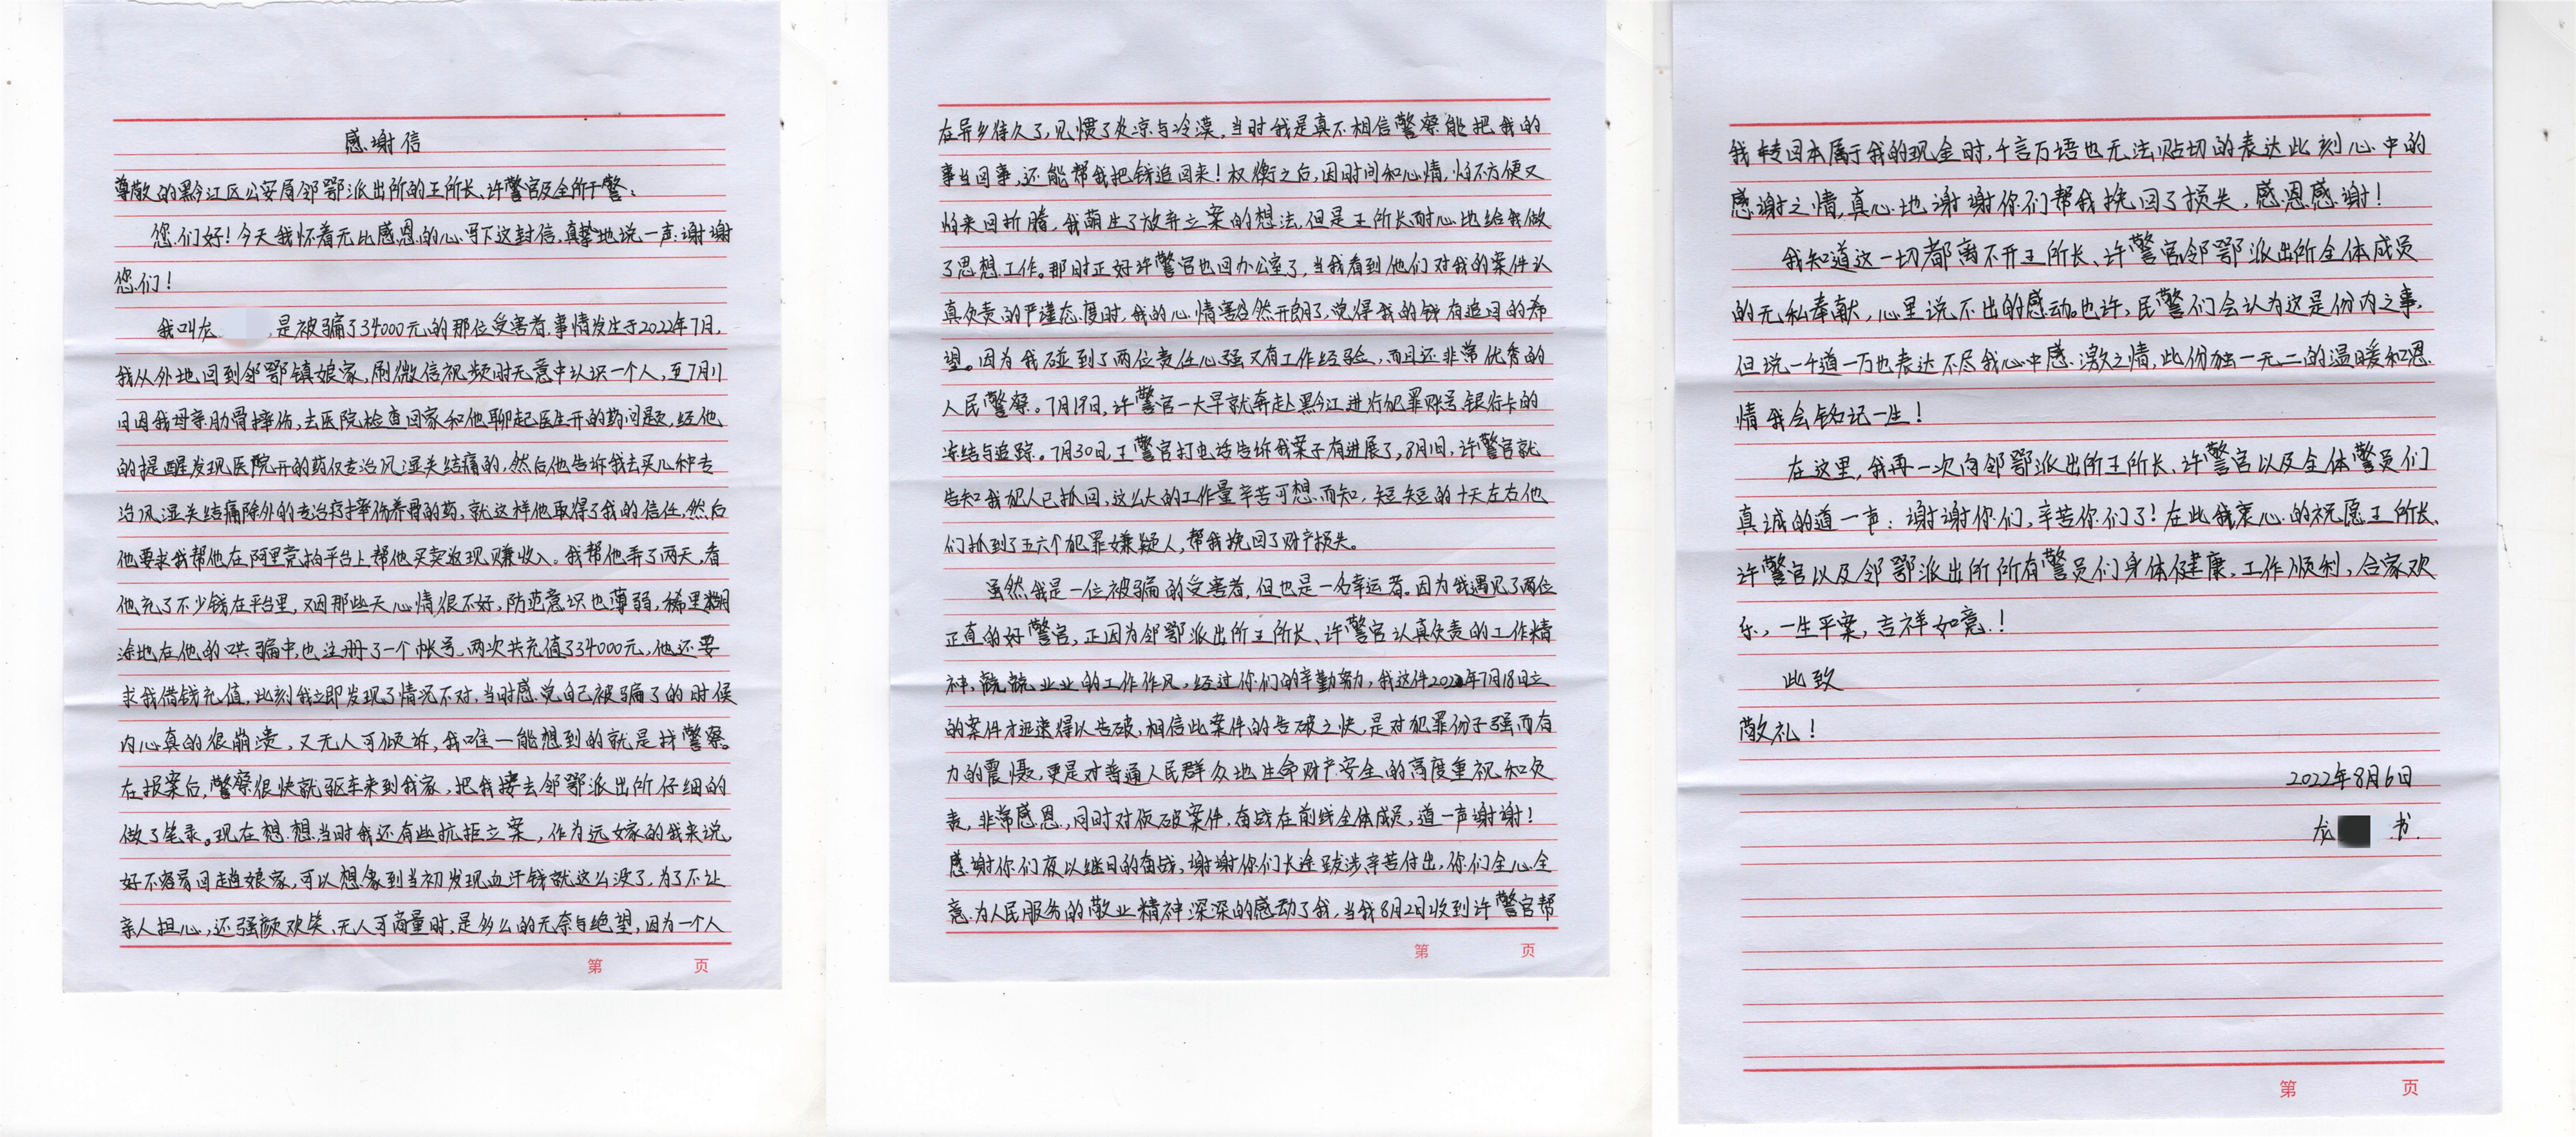 感谢信
尊敬的黔江区公安局邻鄂派出所的王所长、许警官及全所干警：
您们好！今天我怀着无比感恩的心写下这封信，真挚地说一声：谢谢
您们！
我叫龙 是被骗了34000元的那位受害者，事情发生于2022年7月，
我从外地回到邻鄂镇娘家，刷微信视频时无意中认识一个人，至7月11
日因我母亲肋骨摔伤，去医院检查回家和他聊起医生开的药问题，经他
的提醒发现医院开的药仅专治风湿关结痛的，然后他告诉我去买几种专
治风湿关结痛除外的专治疗摔伤养骨的药，就这样他取得了我的信任，然后
他要求我帮他在阿里竞拍平台上帮他买卖返现赚收入。我帮他弄了两天，看
他充了不少钱在平台里，又因那些天心情很不好，防范意识也薄弱，稀里糊
涂地在他的哄骗中，也注册了一个帐号，两次共充值了34000元，他还要
求我借钱充值，此刻我立即发现了情况不对，当时感觉自己被骗了的时候
内心真的很崩溃，又无人可倾诉，我唯一能想到的就是找警察。
在报案后，警察很快就驱车来到我家，把我接去邻鄂派出所仔细的
做了笔录。现在想想当时我还有些抗拒立案，作为远嫁的我来说，
好不容易回趟娘家，可以想象到当初发现血汗钱就这么没了，为了不让
亲人担心，还强颜欢笑、无人可商量时，是多么的无奈与绝望，因为一个人
在异乡待久了，见惯了炎凉与冷漠，当时我是真不相信警察能把我的
事当回事，还能帮我把钱追回来！权衡之后，因时间和心情，怕不方便又
怕来回折腾，我萌生了放弃立案的想法，但是王所长耐心地给我做
了思想工作。那时正好许警官也回办公室了，当我看到他们对我的案件认
真负责的严谨态度时，我的心情豁然开朗了，觉得我的钱有追回的希
望。因为我碰到了两位责任心强又有工作经验，而且还非常优秀的
人民警察。7月19日，许警官一大早就奔赴黔江进行犯罪账号银行卡的
冻结与追踪。7月30日，王警官打电话告诉我案子有进展了，8月1日，许警官就
告知我犯人已抓回，这么大的工作量辛苦可想而知，短短的十天左右他
们抓到了五六个犯罪嫌疑人，帮我挽回了财产损失。
虽然我是一位被骗的受害者，但也是一名幸运者。因为我遇见了两位
正直的好警官，正因为邻鄂派出所王所长、许警官认真负责的工作精
神，兢兢业业的工作作风，经过你们的辛勤努力，我这件2022年7月18日立
的案件才迅速得以告破，相信此案件的告破之快，是对犯罪份子强而有
力的震慑，更是对普通人民群众地生命财产安全的高度重视和负
责，非常感恩，同时对侦破案件，奋战在前线全体成员，道一声谢谢！
感谢你们夜以继日的奋战，谢谢你们长途跋涉辛苦付出，你们全心全
意为人民服务的敬业精神深深的感动了我，当我8月2日收到许警官帮
我转回本属于我的现金时，千言万语也无法贴切的表达此刻心中的
感谢之情，真心地谢谢你们帮我挽回了损失，感恩感谢！
我知道这一切都离不开王所长、许警官邻鄂派出所全体成员
的无私奉献，心里说不出的感动。也许，民警们会认为这是份内之事，
但说一千道一万也表达不尽我心中感激之情，此份独一无二的温暖和恩
情我会铭记一生！
在这里，我再一次向邻鄂派出所王所长、许警官以及全体警员们
真诚的道一声：谢谢你们，辛苦你们了！在此我衷心的祝愿王所长、
许警官以及邻鄂派出所所有警员们身体健康，工作顺利，合家欢
乐，一生平案，吉祥如意！
此致
敬礼！
2022年8月6日
龙 书.
第 页
第 页
第 页